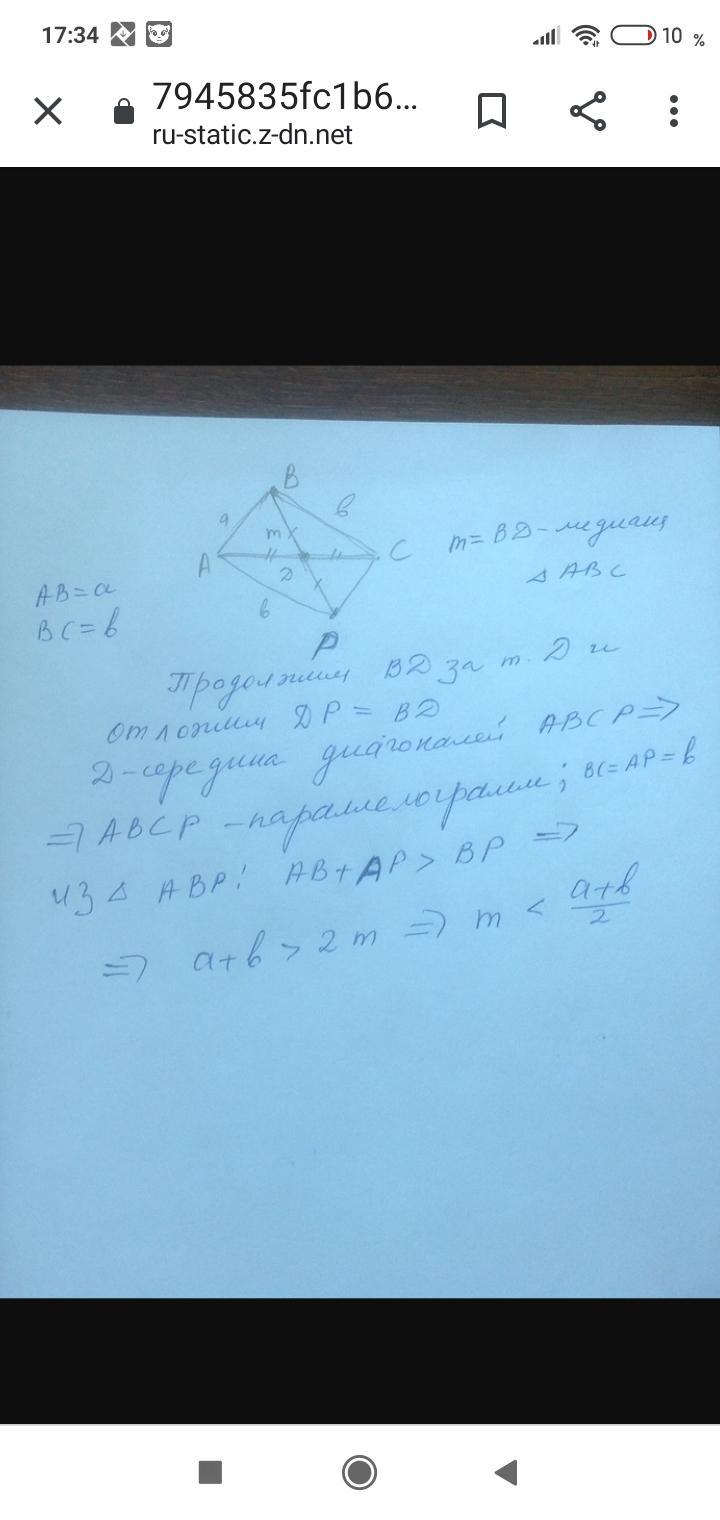 17:34
10 %
7945835fc1b6...
ru-static.z-dn.net
B
a
b
m
A
C
D
b
P
m = BD - медиана
△ ABC
AB = a
BC = b
Продолжим BD за т. D и
отложим DP = BD
D - середина диагоналей ABCP =>
=> ABCP - параллелограмм; BC = AP = b
из △ ABP: AB + AP > BP =>
=> a + b > 2m => m < (a+b)/2